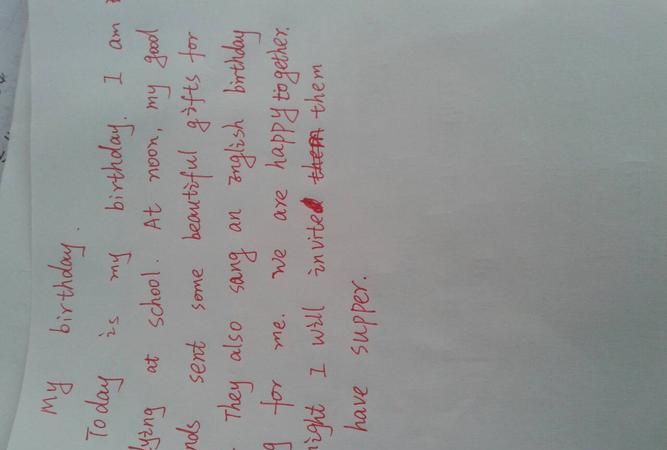 My birthday.
Today is my birthday. I am
lying at school. At noon, my good
nds sent some beautiful gifts for
They also sang an english birthday
g for me. we are happy together.
night I will invite them
have supper.